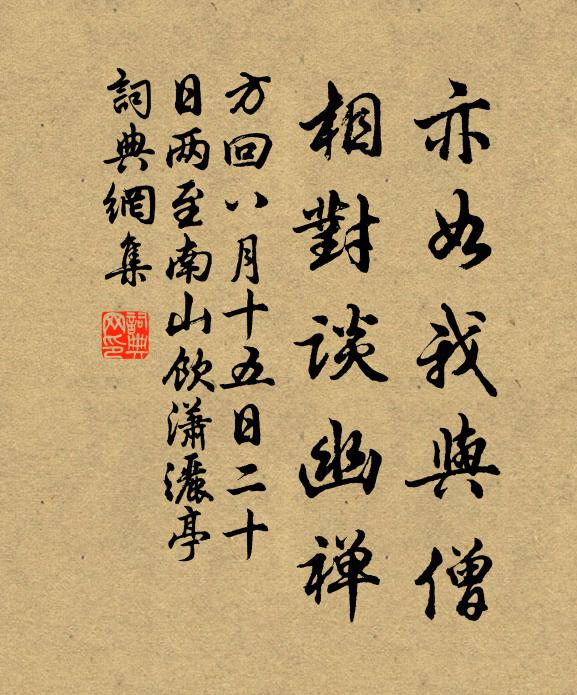 亦如我與僧
相對談幽禅
方回八月十五日二十
日两至南山飲瀟灑亭
詞典網集
詞典网印